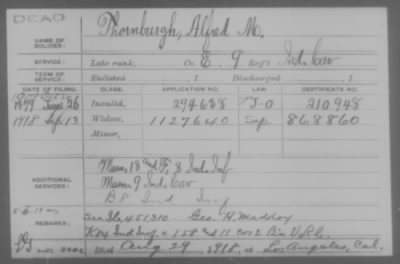 DEAD
NAME OF SOLDIER: Thornburgh, Alfred M.
SERVICE: Late rank, Co. E, 9 Reg't Ind. Cav
TERM OF SERVICE: Enlisted , 1 Discharged , 1
DATE OF FILING. CLASS. APPLICATION NO. LAW. CERTIFICATE NO.
1879 June 26 Invalid, 294638 J-O 210948
1918 Sep. 13 Widow, 1127640 868860
Minor,
ADDITIONAL SERVICES: 18 F, 8 Ind. Inf
9 Ind. Cav
B 8 Ind Inf
REMARKS: 451,310 Geo. H. Maddox
K 84 Ind. Inf. + 158 Co 2 Bn V.R.C.
Died Aug 29, 1918, at Los Angeles, Cal.